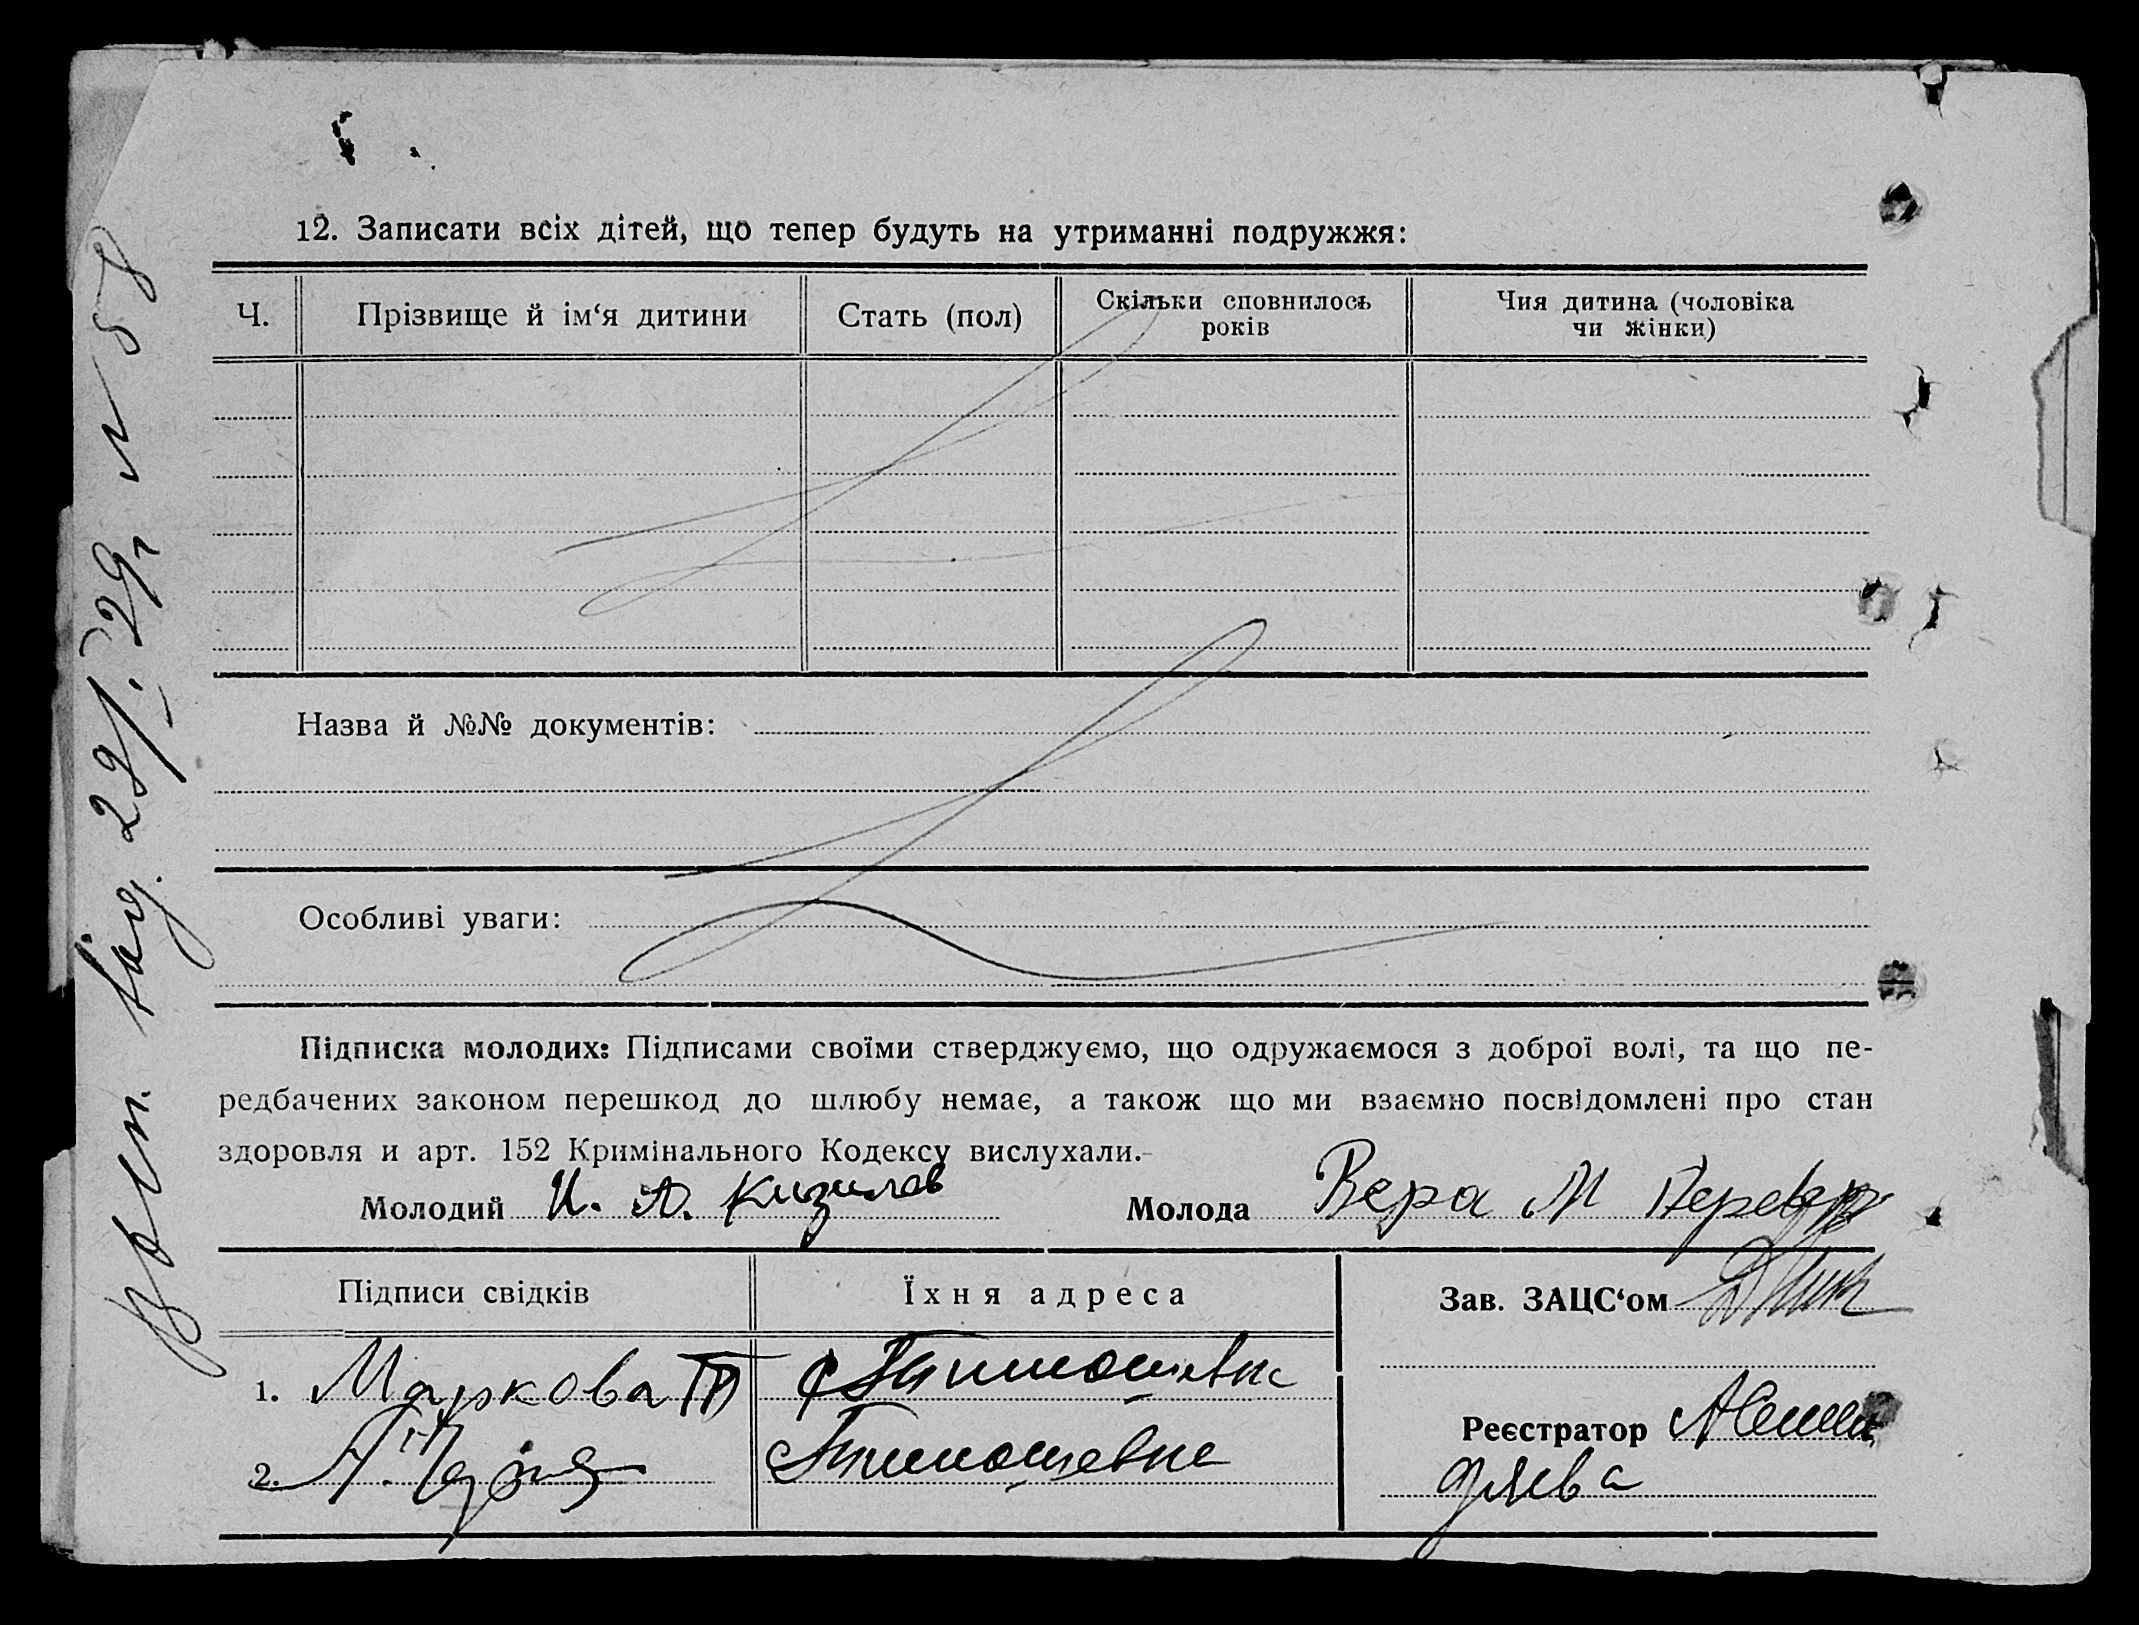 12. Записати всіх дітей, що тепер будуть на утриманні подружжя:
Ч.
Прізвище й ім‘я дитини
Стать (пол)
Скільки сповнилось
років
Чия дитина (чоловіка
чи жінки)
Назва й №№ документів:
Особливі уваги:
Підписка молодих: Підписами своїми стверджуємо, що одружаємося з доброї волі, та що пе-
редбачених законом перешкод до шлюбу немає, а також що ми взаємно посвідомлені про стан
здоровля и арт. 152 Кримінального Кодексу вислухали.
Молодий И. А. Кизилов
Молода Вера М
Підписи свідків
Їхня адреса
1. Маркова П
с Тимошевка
2.
с Тимошевка
Зав. ЗАЦС‘ом
Реєстратор
29/I. 29 г № 58